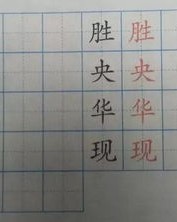 胜 胜
央 央
华 华
现 现